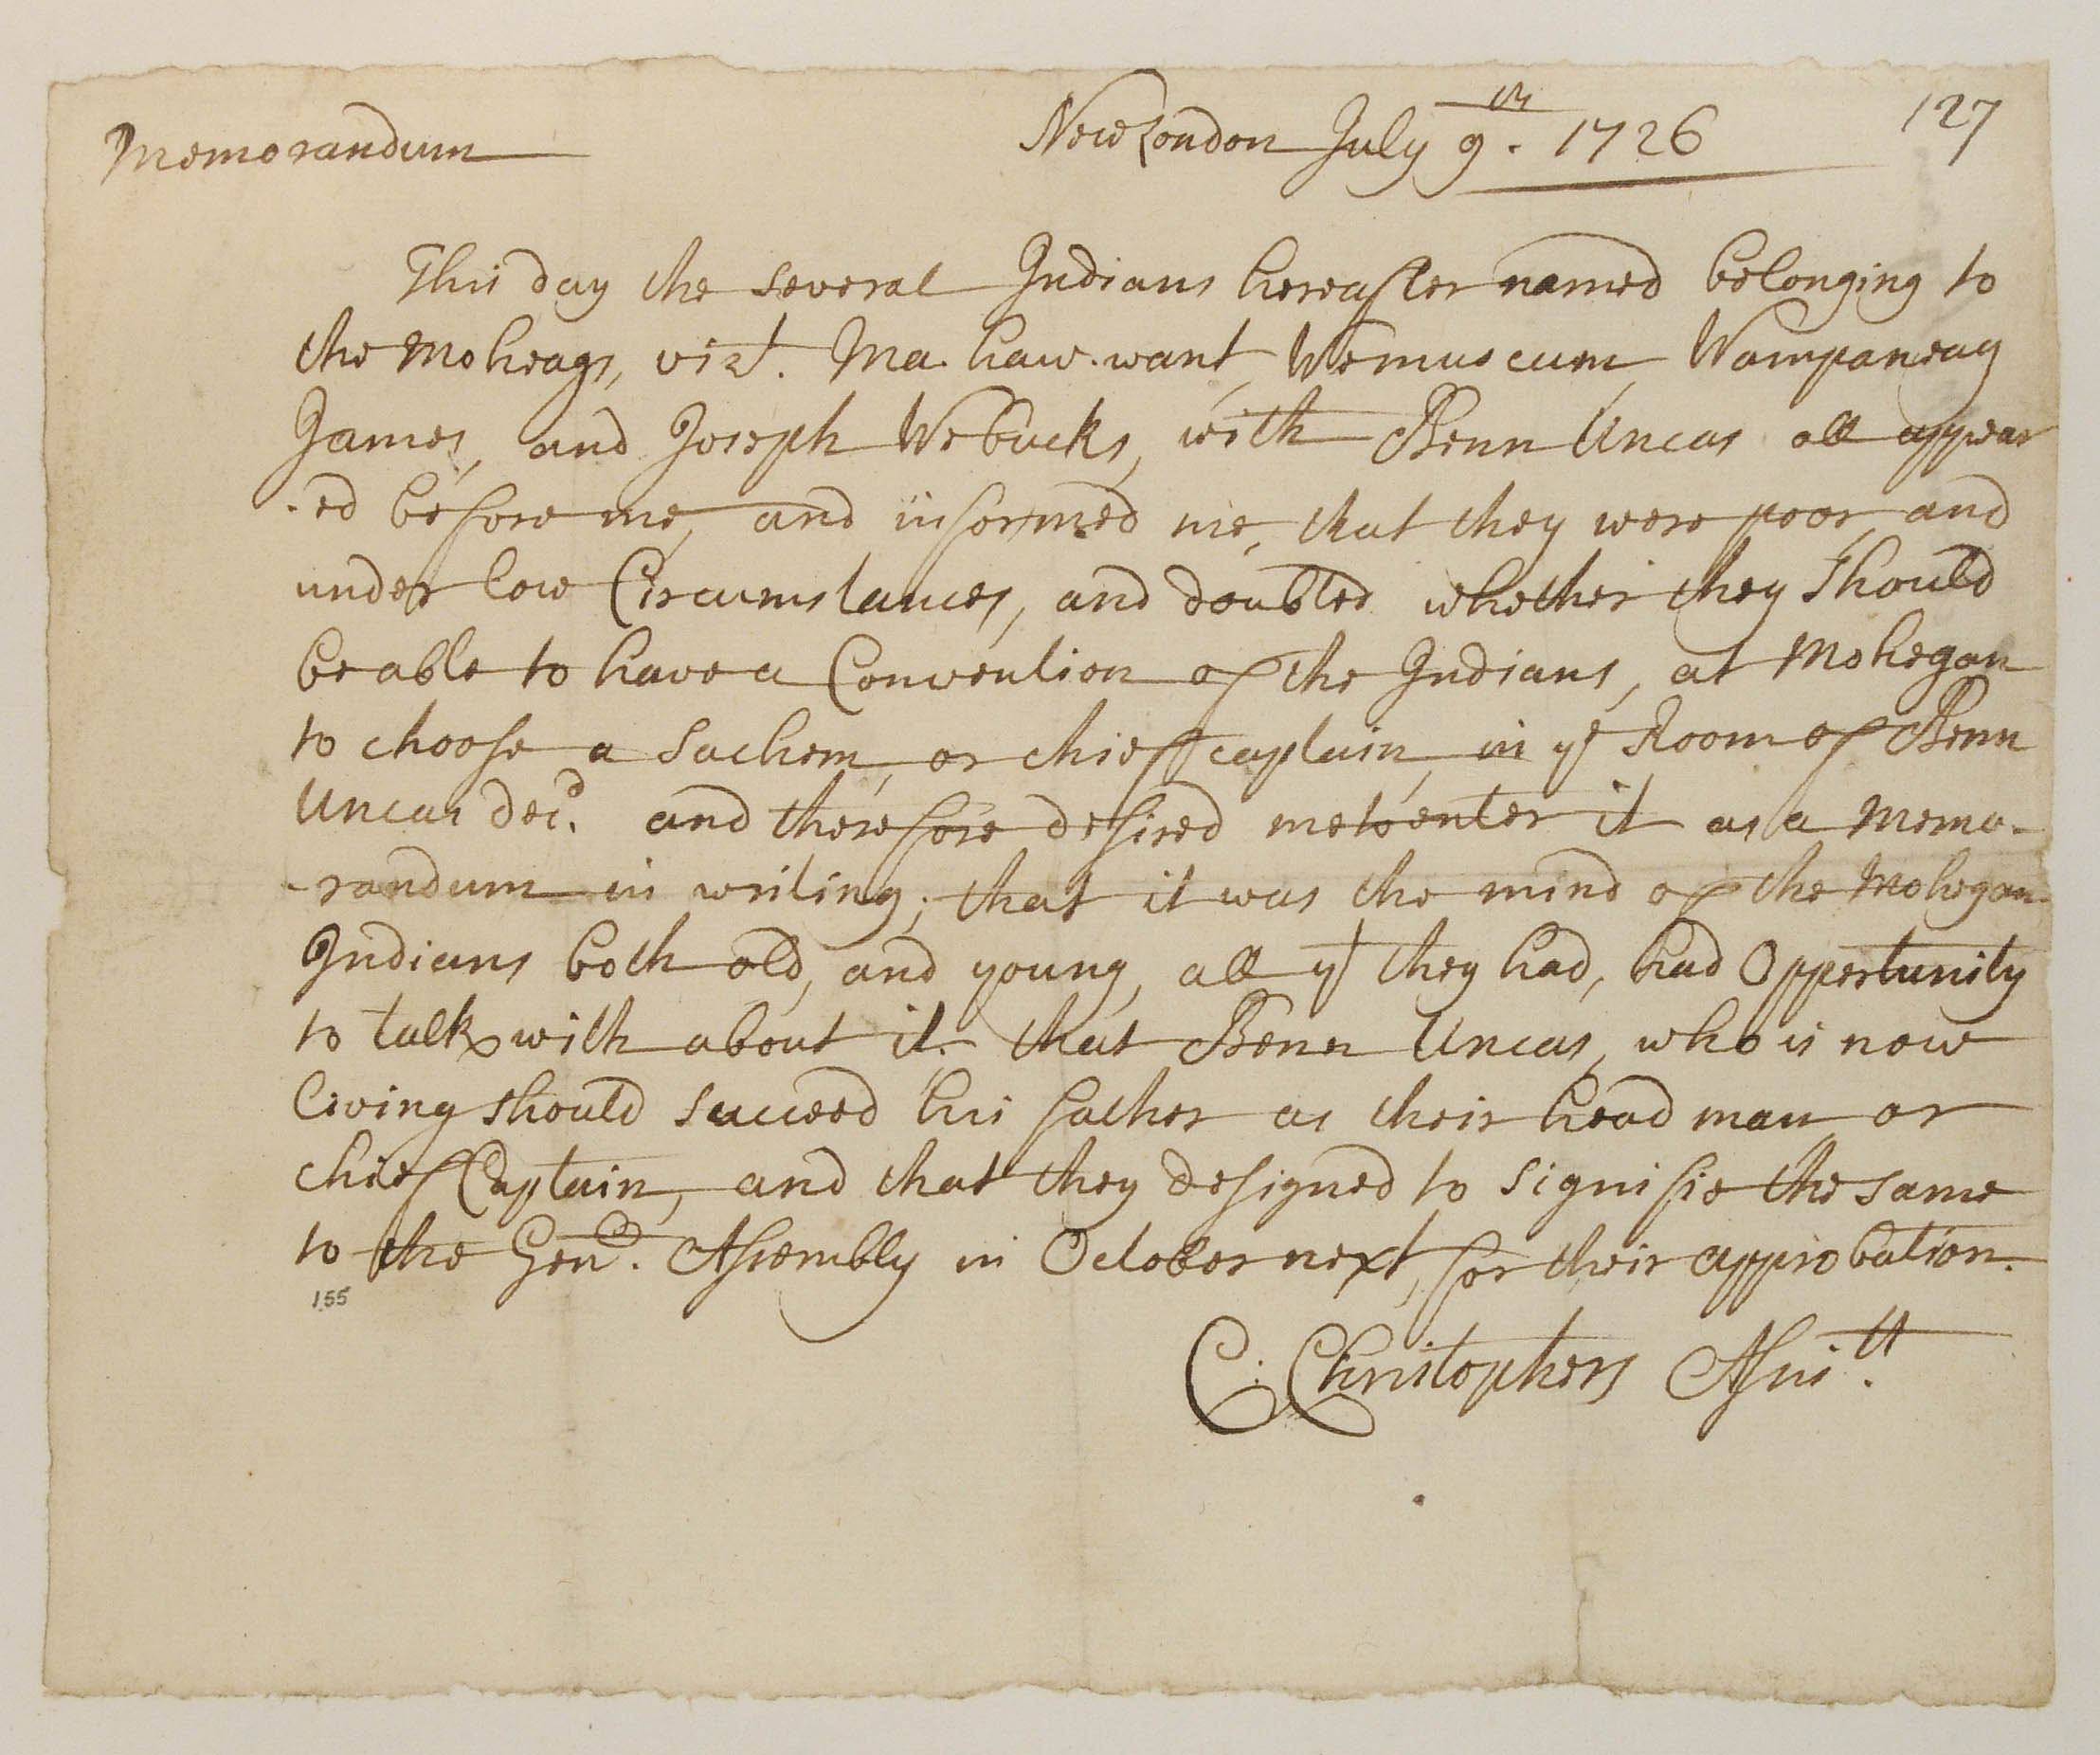 Memorandum New London July 9th. 1726 127
This day the several Indians hereafter named belonging to
the Moheags, vizt. Ma. haw. want, Wemuscum, Wampaneag
James, and Joseph Webucks, with Benn Uncas all appear
-ed before me, and informed me, that they were poor, and
under low Circumstances, and doubted whether they should
be able to have a Convention of the Indians, at Mohegan
to choose a Sachem, or chieff captain, in ye Room of Benn
Uncas decd. and therefore desired me to enter it as a Memo-
-randum in writing; that it was the mind of the Mohegan
Indians both old, and young, all yt they had, had Oppertunity
to talk with about it. that Benn Uncas, who is now
living should succeed his father as their head man or
chief Captain, and that they designed to signifie the same
to the Genll. Assembly in October next, for their approbation.
155
C: Christophers Assistt.